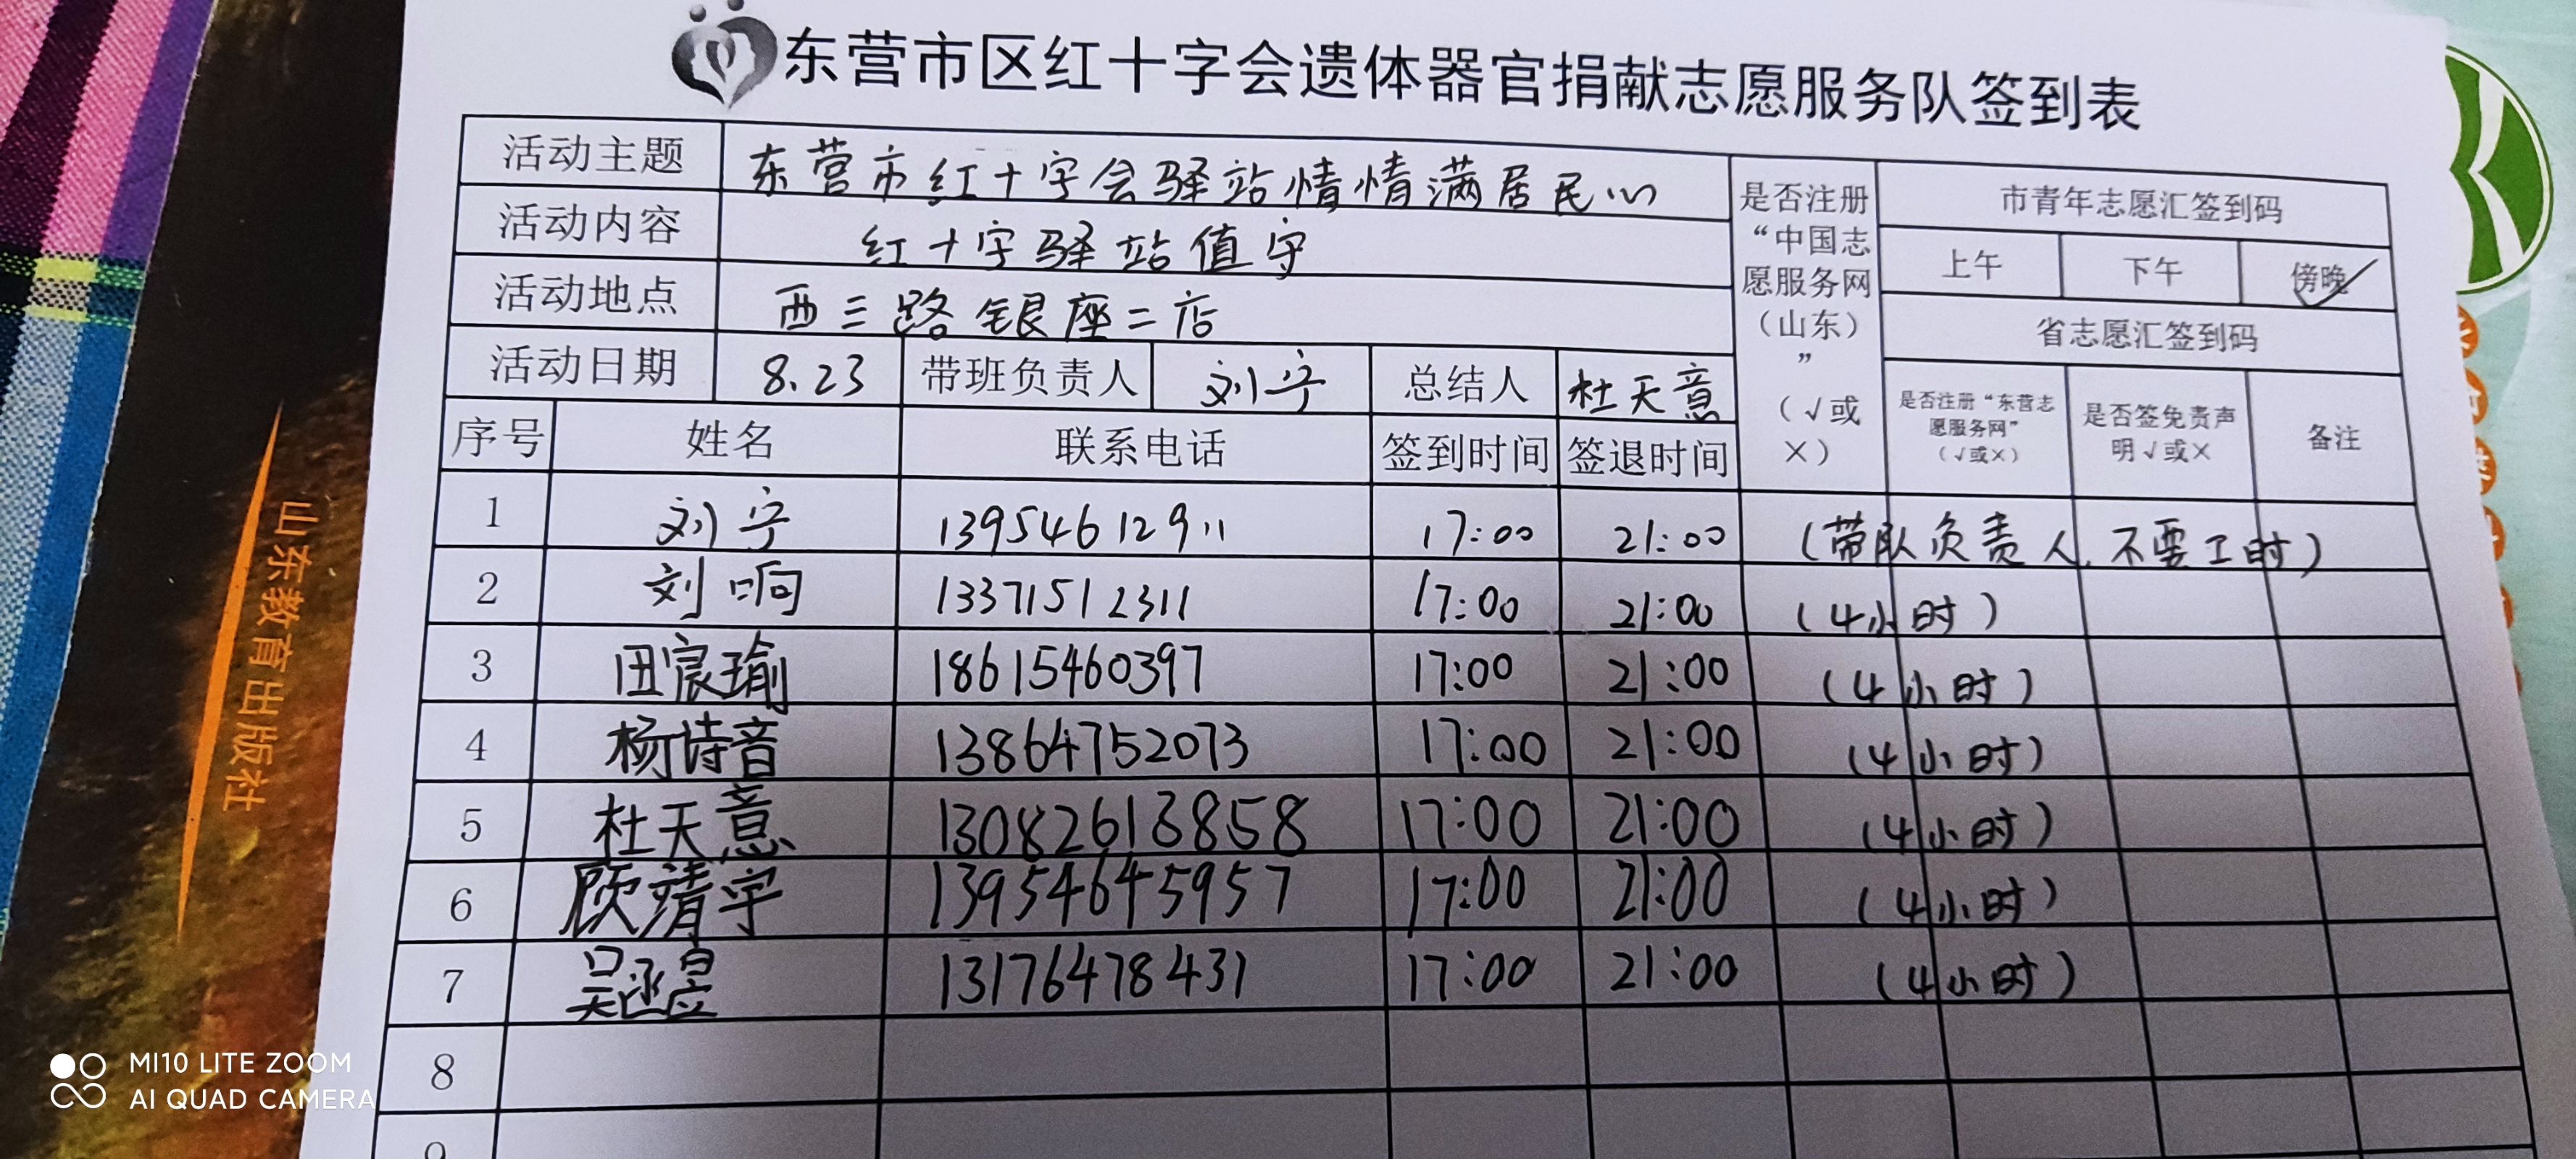 东营市区红十字会遗体器官捐献志愿服务队签到表
活动主题 东营市红十字会驿站情情满居民心
活动内容 红十字驿站值守
活动地点 西三路银座二店
活动日期 8.23 带班负责人 刘宁 总结人 杜天意
是否注册“中国志愿服务网（山东）”（√或×）
市青年志愿汇签到码
上午 下午 傍晚✓
省志愿汇签到码
是否注册“东营志愿服务网”（√或×） 是否签免责声明√或× 备注
序号 姓名 联系电话 签到时间 签退时间
1 刘宁 13954612911 17:00 21:00 (带队负责人,不要工时)
2 刘响 13371512311 17:00 21:00 (4小时)
3 田宸瑜 18615460397 17:00 21:00 (4小时)
4 杨诗音 13864752073 17:00 21:00 (4小时)
5 杜天意 13082613858 17:00 21:00 (4小时)
6 顾靖宇 13954645957 17:00 21:00 (4小时)
7 吴函昱 13176478431 17:00 21:00 (4小时)
8
9
山东教育出版社
MI10 LITE ZOOM
AI QUAD CAMERA